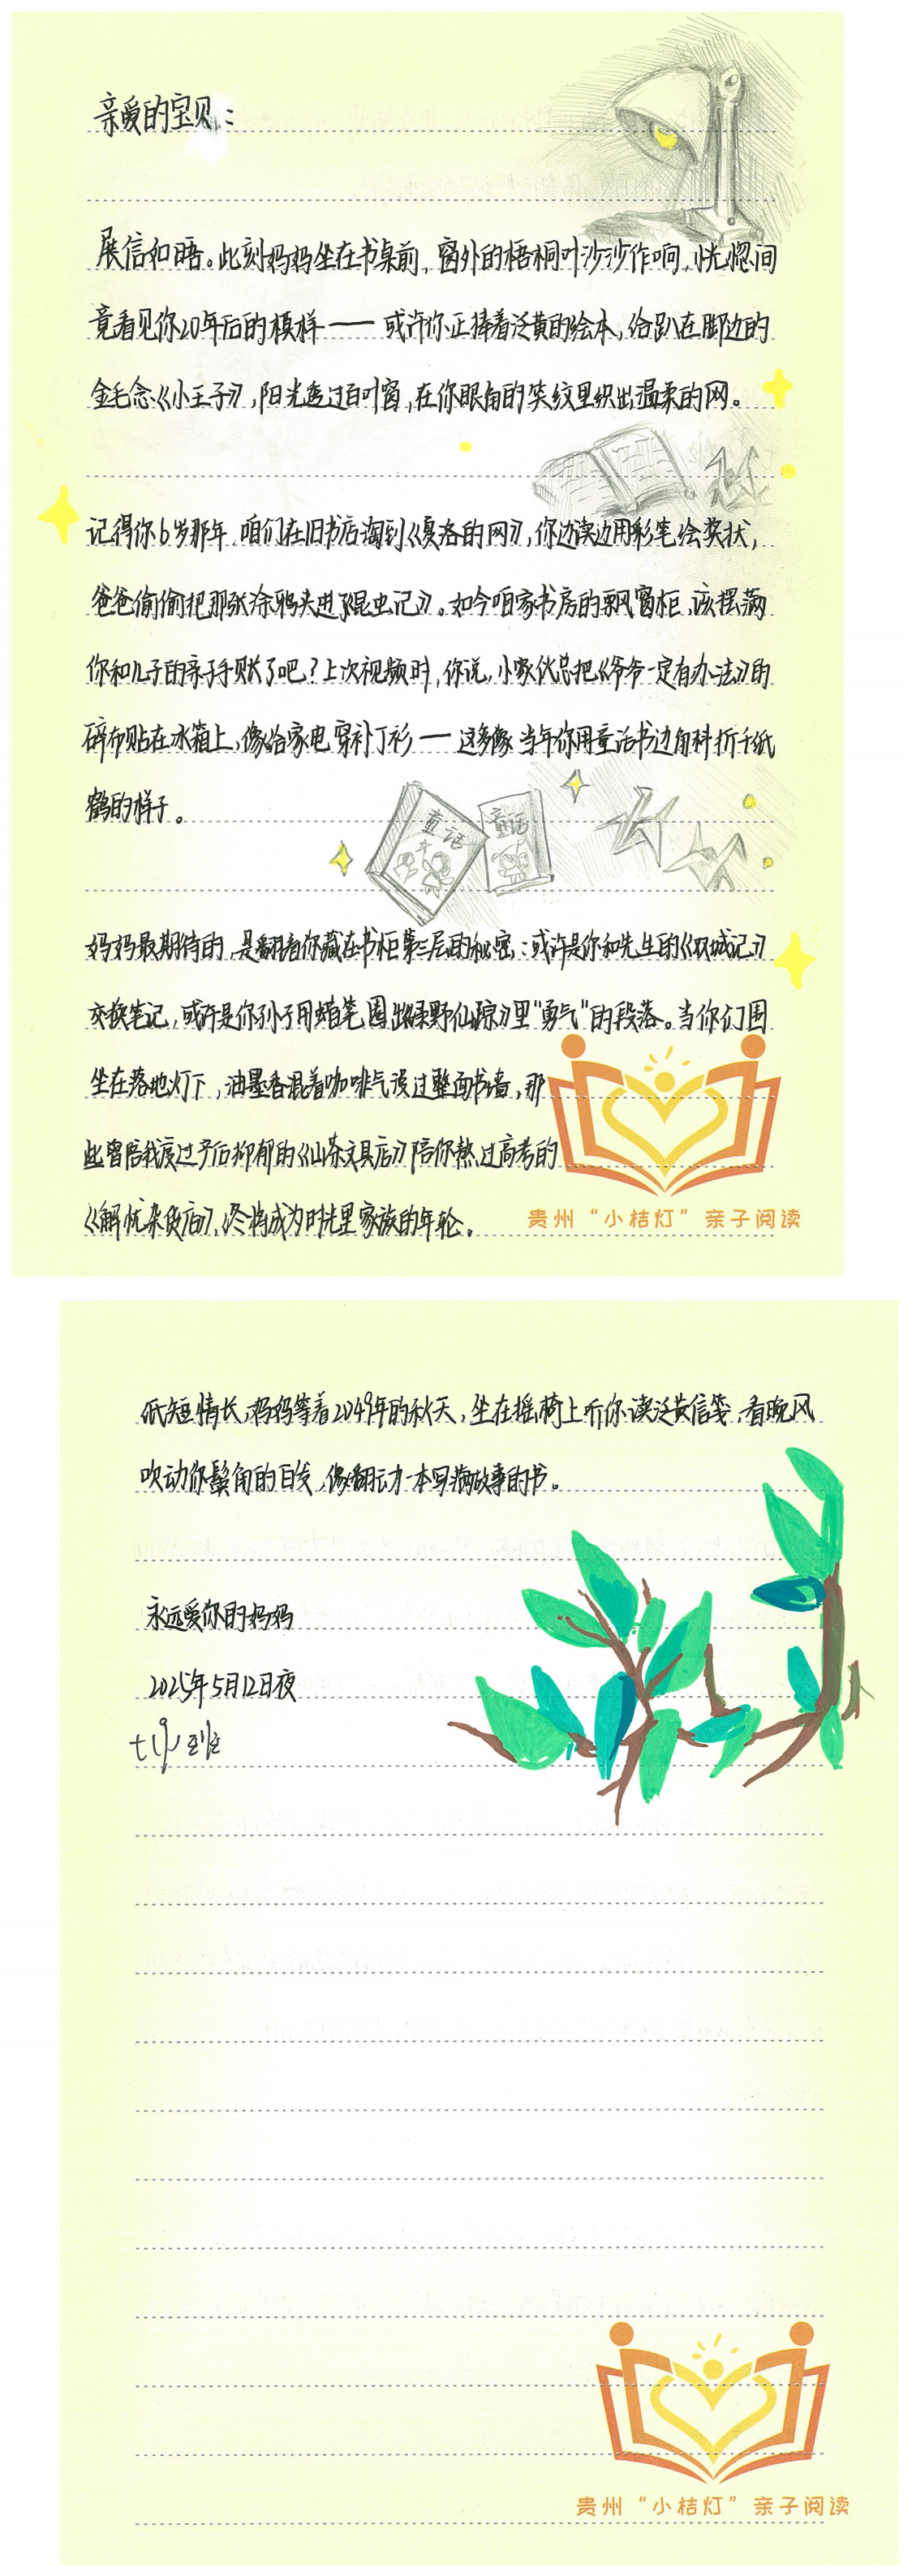 亲爱的宝贝：
展信如晤。此刻妈妈坐在书桌前，窗外的梧桐叶沙沙作响，恍惚间
竟看见你20年后的模样——或许你正捧着泛黄的绘本，给趴在脚边的
金毛念《小王子》，阳光透过百叶窗，在你眼角的笑纹里织出温柔的网。
记得你6岁那年，咱们在旧书店淘到《夏洛的网》，你边读边用彩笔绘奖状，
爸爸偷偷把那张涂鸦夹进《昆虫记》。如今咱家书房的飘窗柜，该摆满
你和儿子的亲子手账了吧？上次视频时，你说，小家伙总把《爷爷一定有办法》的
碎布贴在冰箱上，像给家电穿补丁衫——这多像当年你用童话书边角料折千纸
鹤的样子。
童话
童话
妈妈最期待的，是翻看你藏在书柜第三层的秘密：或许是你和先生的《双城记》
交换笔记，或许是你孙子用蜡笔圈出《绿野仙踪》里“勇气”的段落。当你们围
坐在落地灯下，油墨香混着咖啡气漫过整面书墙，那
些曾陪我度过产后抑郁的《山茶文具店》陪你熬过高考的
《解忧杂货店》，终将成为时光里家族的年轮。
贵州“小桔灯”亲子阅读
纸短情长，妈妈等着2049年的秋天，坐在摇椅上听你读泛黄信笺，看晚风
吹动你鬓角的白发，像翻动一本写满故事的书。
永远爱你的妈妈
2025年5月12日夜
贵州“小桔灯”亲子阅读